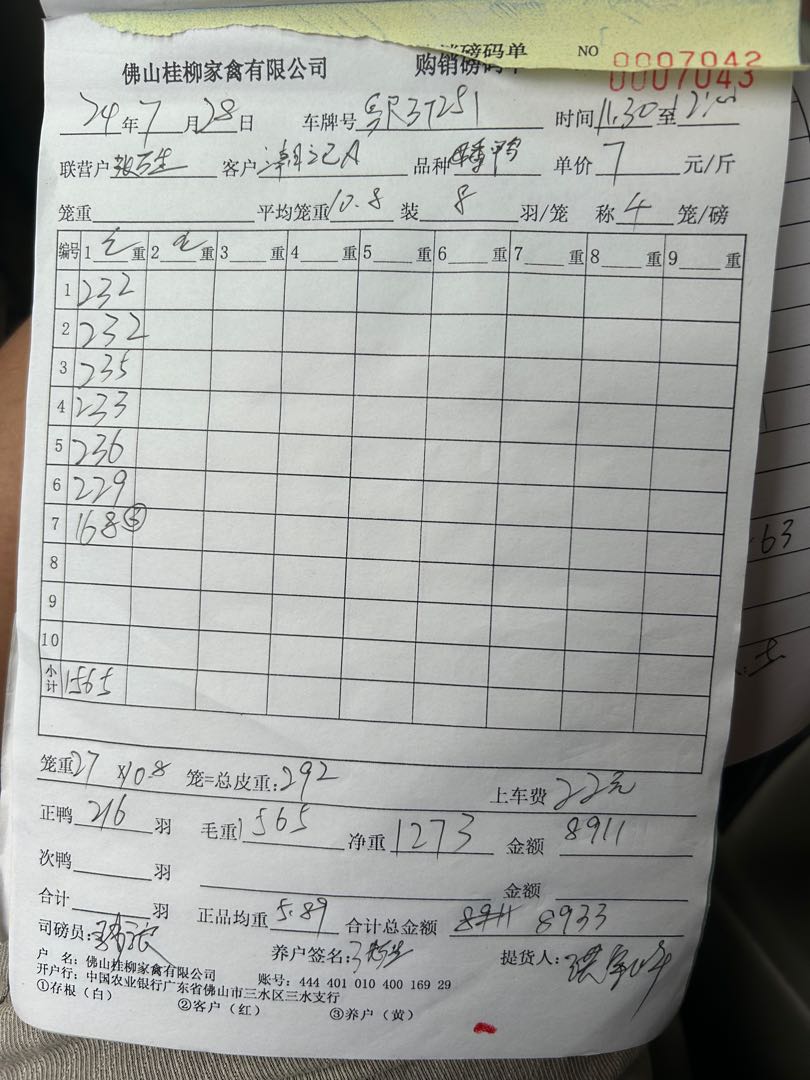 购销磅码单 NO 0007042
佛山桂柳家禽有限公司 0007043
24年7月28日 车牌号 时间11.30至12:00
联营户 客户 品种 单价7元/斤
笼重 平均笼重10.8 装8羽/笼 称4笼/磅
编号 1毛重 2毛重 3重 4重 5重 6重 7重 8重 9重
1 232
2 232
3 235
4 233
5 236
6 229
7 168③
8
9
10
小计 1565
笼重27×10.8 笼=总皮重:292 上车费22元
正鸭216羽 毛重1565 净重1273 金额8911
次鸭 羽 金额
合计 羽 正品均重5.89 合计总金额8911 8933
司磅员: 养户签名: 提货人:
户 名:佛山桂柳家禽有限公司 账号:444 401 010 400 169 29
开户行:中国农业银行广东省佛山市三水区三水支行
①存根(白) ②客户(红) ③养户(黄)
63